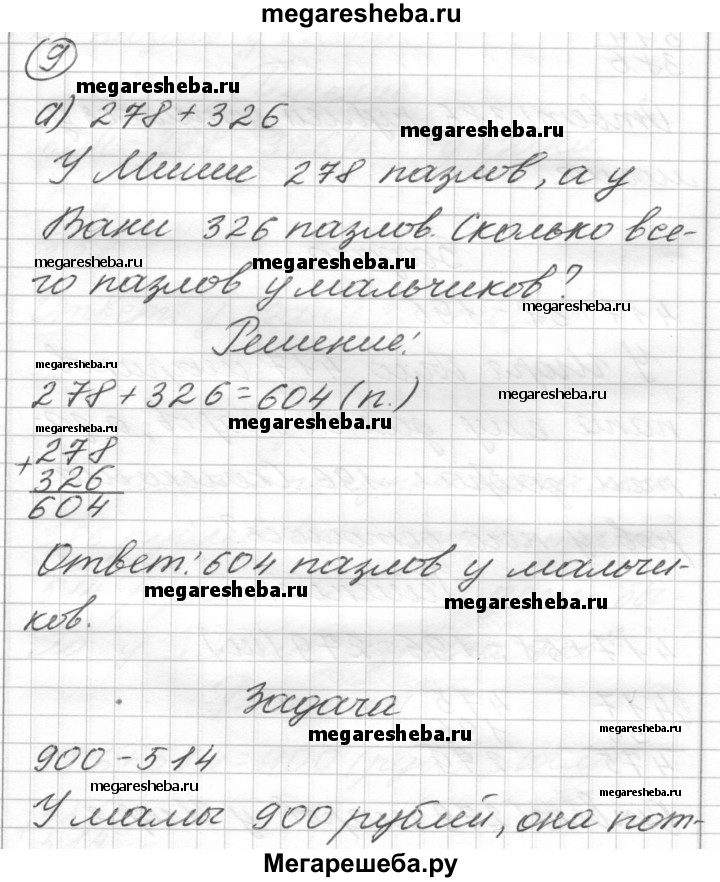 megaresheba.ru
9
megaresheba.ru
а) 278 + 326
megaresheba.ru
У Миши 278 пазлов, а у
Вани 326 пазлов. Сколько все-
megaresheba.ru megaresheba.ru megaresheba.ru
го пазлов у мальчиков?
megaresheba.ru
Решение:
megaresheba.ru
278 + 326 = 604 (п.)
megaresheba.ru
megaresheba.ru
megaresheba.ru
+ 278
326
604
Ответ: 604 пазлов у мальчи-
megaresheba.ru
megaresheba.ru
ков.
Задача
megaresheba.ru
megaresheba.ru
900 - 514
megaresheba.ru
megaresheba.ru
У мамы 900 рублей, она пот-
Мегарешеба.ру